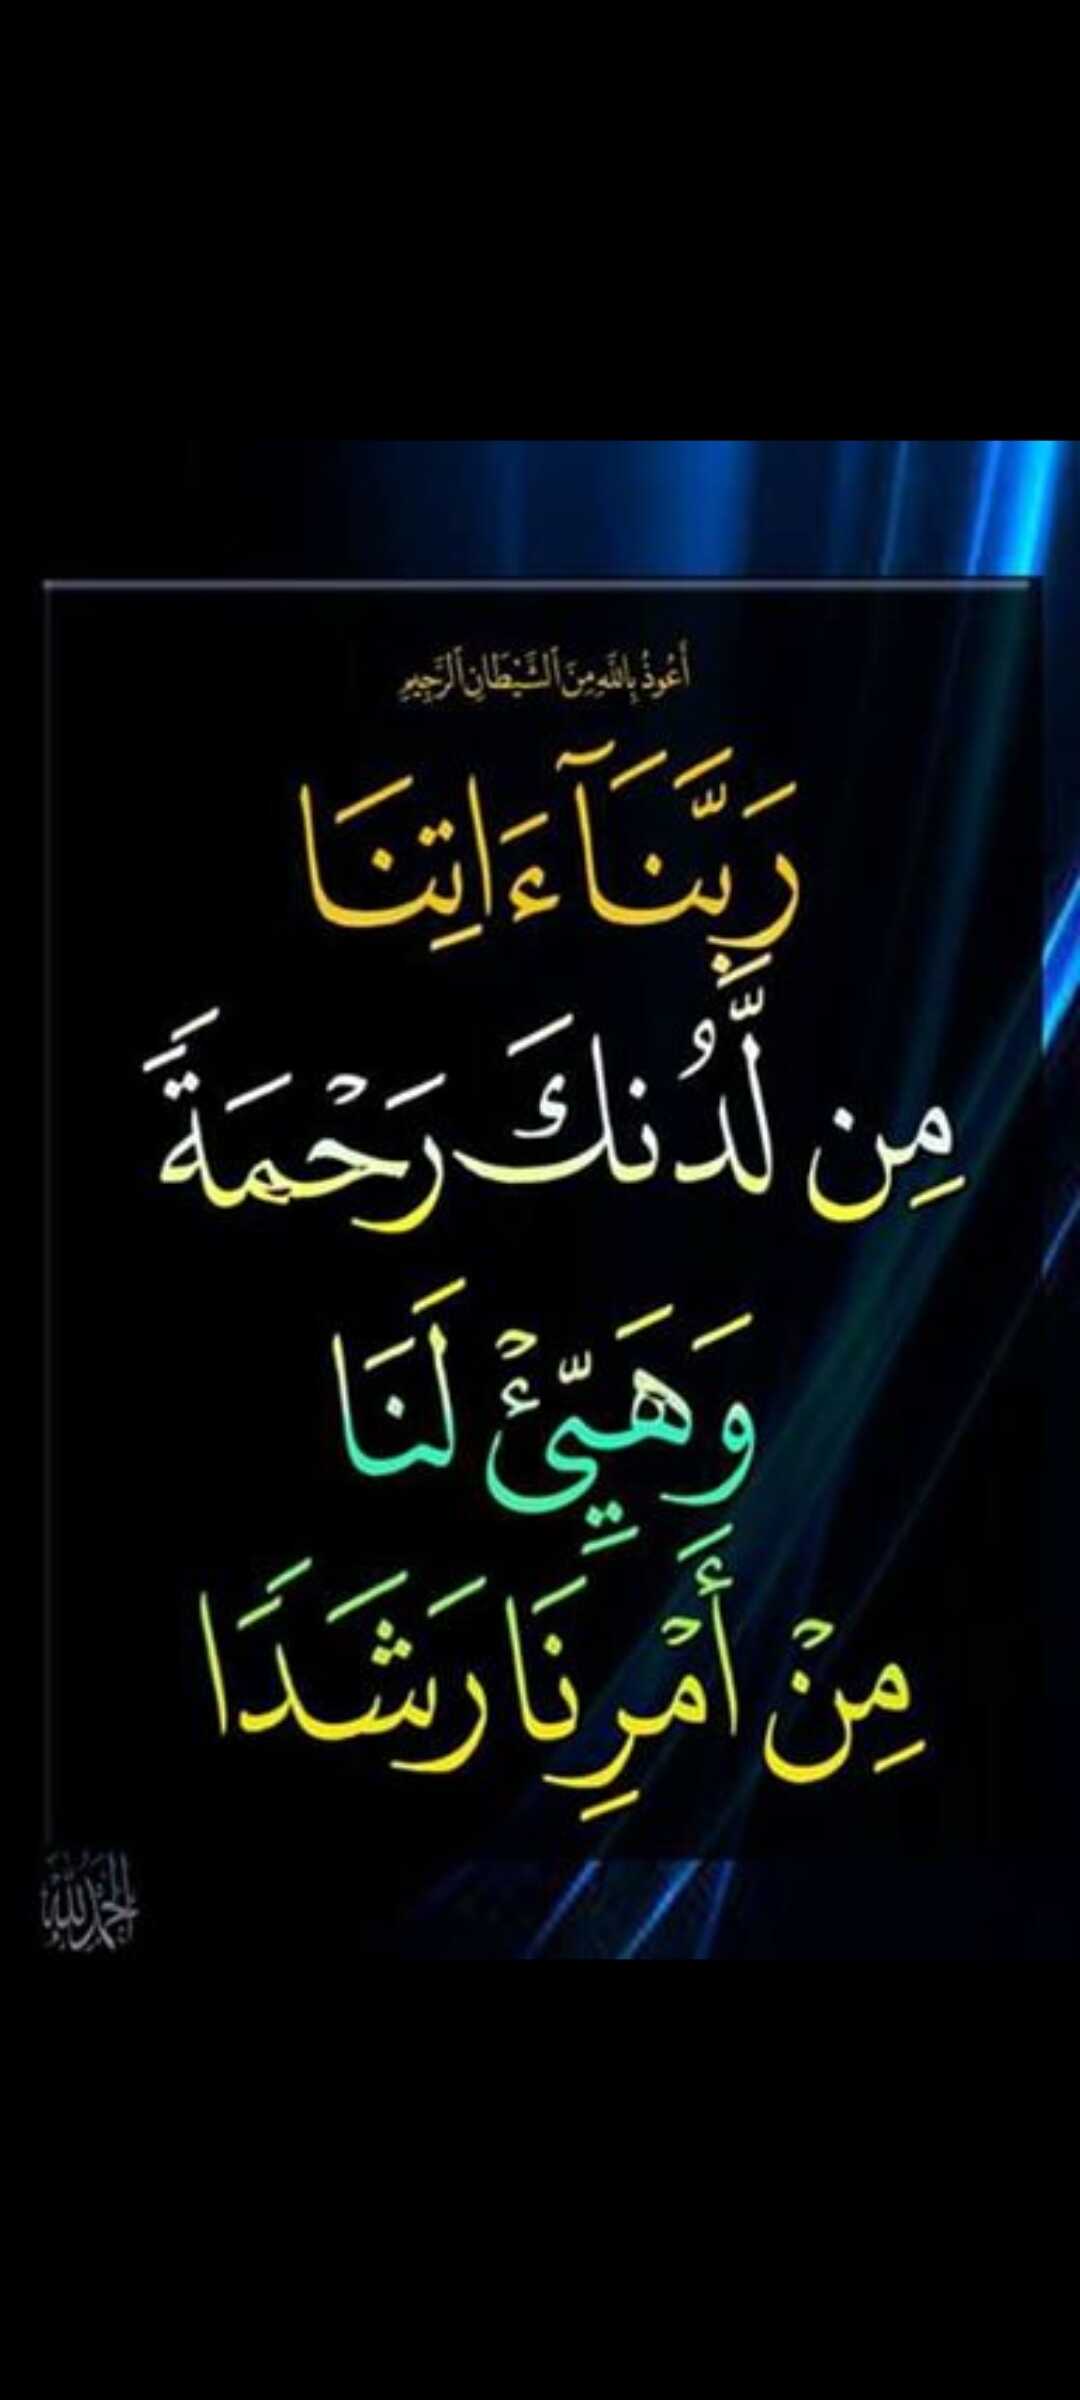 أَعُوذُ بِاللَّهِ مِنَ ٱلشَّيْطَانِ ٱلرَّجِيمِ
رَبَّنَآ ءَاتِنَا
مِن لَّدُنكَ رَحْمَةً
وَهَيِّئْ لَنَا
مِنْ أَمْرِنَا رَشَدًا
الحمد لله